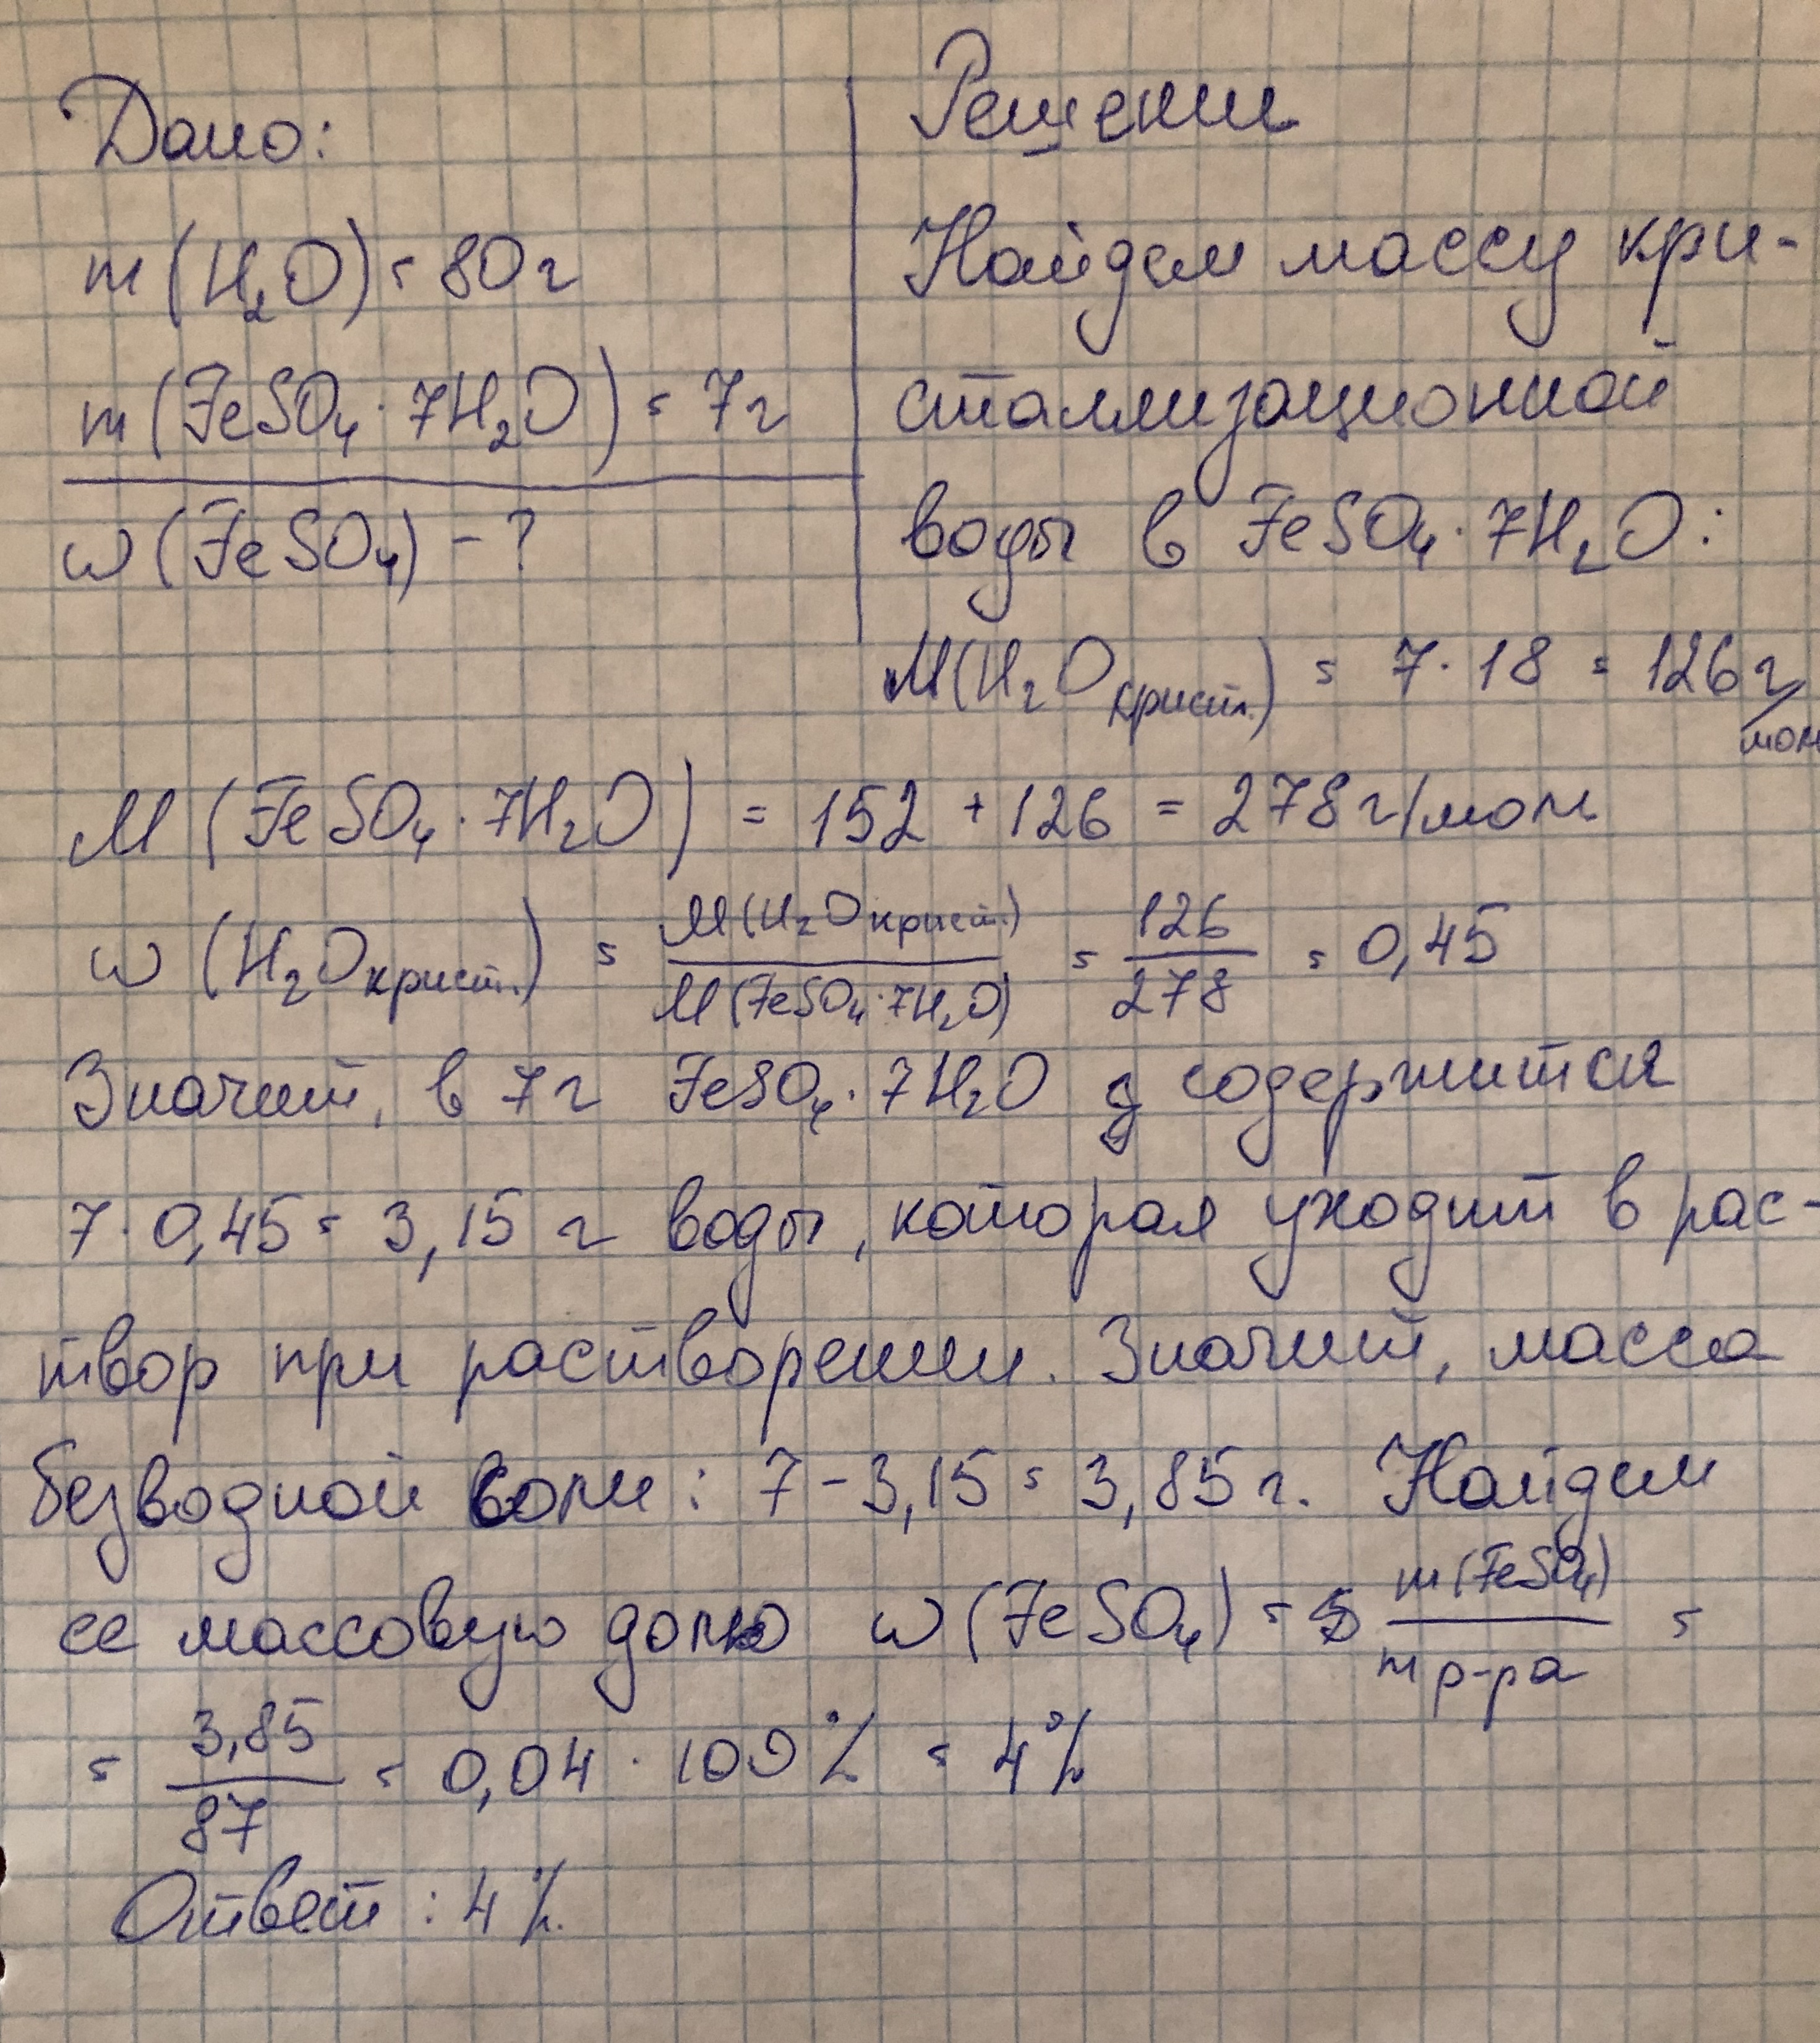 Дано:
m(H₂O) = 80г
m(FeSO₄·7H₂O) = 7г
ω(FeSO₄) - ?
Решении
Найдем массу кри-
сталлизационной
воды в FeSO₄·7H₂O:
M(H₂O крист.) = 7·18 = 126 г/мол
M(FeSO₄·7H₂O) = 152 + 126 = 278 г/моль
ω(H₂O крист.) = M(H₂O крист.)/M(FeSO₄·7H₂O) = 126/278 = 0,45
Значит, в 7г FeSO₄·7H₂O содержится
7·0,45 = 3,15 г воды, которая уходит в рас-
твор при растворении. Значит, масса
безводной соли: 7 - 3,15 = 3,85г. Найдем
ее массовую долю ω(FeSO₄) = m(FeSO₄)/m р-ра =
= 3,85/87 = 0,04 · 100% = 4%
Ответ: 4%.